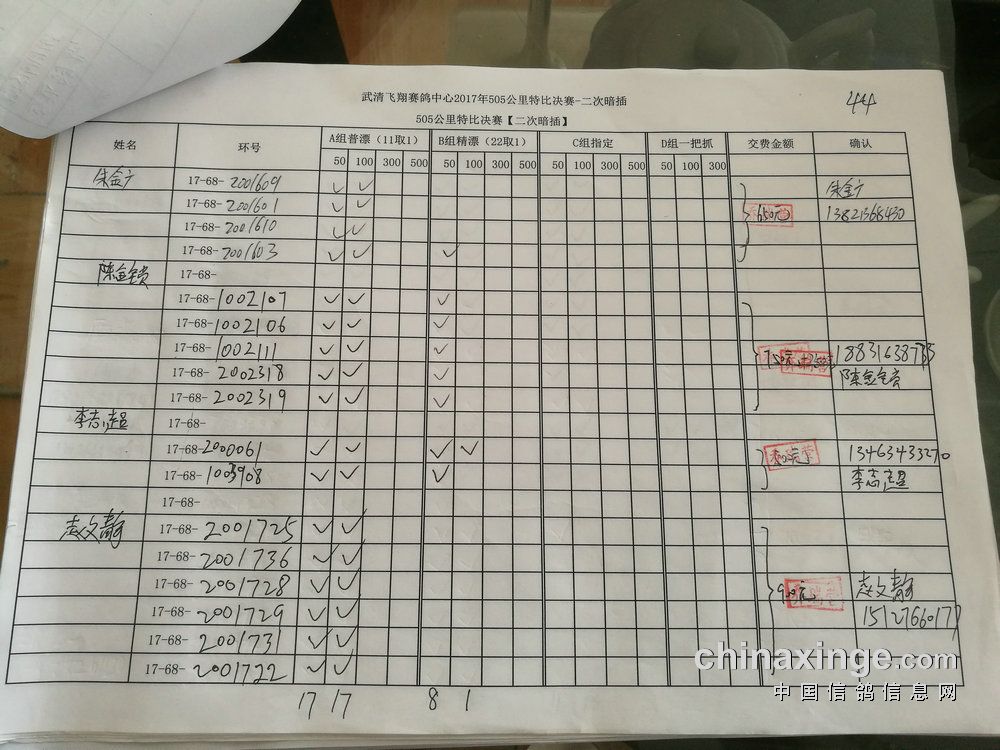 武清飞翔赛鸽中心2017年505公里特比决赛-二次暗插
44
505公里特比决赛【二次暗插】
姓名 环号 A组普漂（11取1） B组精漂（22取1） C组指定 D组一把抓 交费金额 确认
50 100 300 500 50 100 300 500 50 100 300 500 50 100 300
朱金广 17-68-2001609 ✓ ✓ 朱金广
17-68-2001601 ✓ ✓ 650元 13821368430
17-68-2001610 ✓ ✓
17-68-2001603 ✓ ✓ ✓
陈金贵 17-68-
17-68-1002107 ✓ ✓ ✓
17-68-1002106 ✓ ✓ ✓
17-68-1002111 ✓ ✓ ✓ 18831638735
17-68-2002318 ✓ ✓ ✓ 陈金贵
17-68-2002319 ✓ ✓ ✓
李志超 17-68-
17-68-2000061 ✓ ✓ ✓ ✓ 13463433270
17-68-1003908 ✓ ✓ ✓ 李志超
17-68-
赵文静 17-68-2001725 ✓ ✓
17-68-2001736 ✓ ✓
17-68-2001728 ✓ ✓ 900元 赵文静
17-68-2001729 ✓ ✓ 15127660177
17-68-2001731 ✓ ✓
17-68-2001722 ✓ ✓
17 17 8 1
chinaxinge.com
中国信鸽信息网